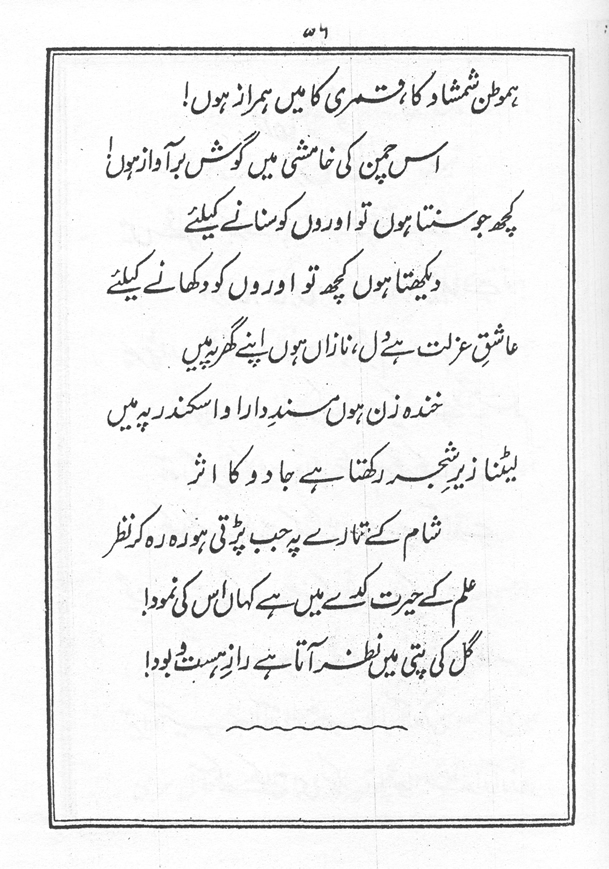 ۳۶
ہموطن شمشاد کا، قمری کا میں ہمراز ہوں!
اس چمن کی خامشی میں گوش بر آواز ہوں!
کچھ جو سنتا ہوں تو اوروں کو سنانے کیلئے
دیکھتا ہوں کچھ تو اوروں کو دکھانے کیلئے
عاشقِ عزلت ہے دل، نازاں ہوں اپنے گھر پہ میں
خندہ زن ہوں مسندِ دارا و اسکندر پہ میں
لیٹنا زیرِ شجر رکھتا ہے جادو کا اثر
شام کے تارے پہ جب پڑتی ہو رہ رہ کر نظر
علم کے حیرت کدے میں ہے کہاں اس کی نمود!
گل کی پتی میں نظر آتا ہے رازِ ہست و بود!